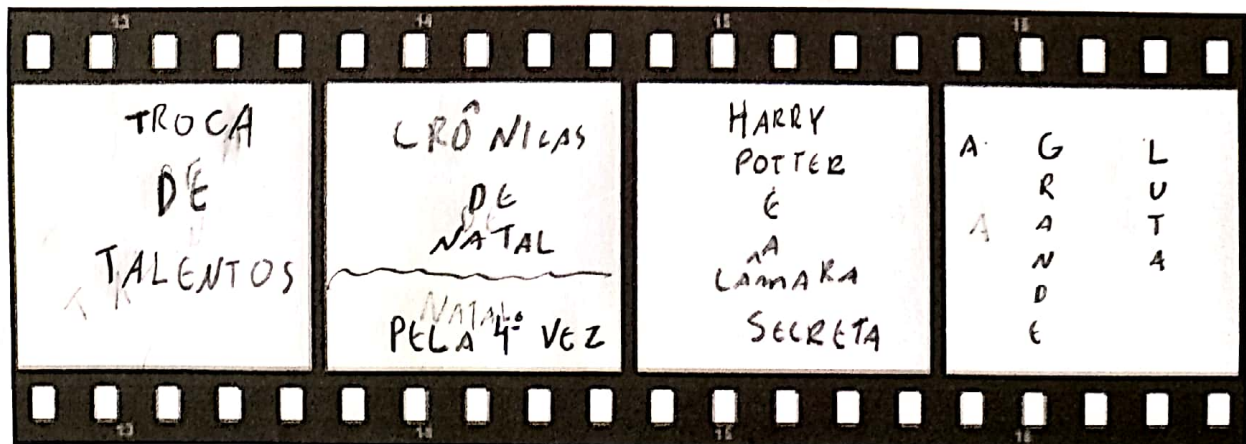 13
14
15
16
TROCA
DE
TALENTOS
CRÔNICAS
DE
NATAL
PELA 4º VEZ
HARRY
POTTER
E
A
CÂMARA
SECRETA
A GRANDE LUTA
13
14
15
16